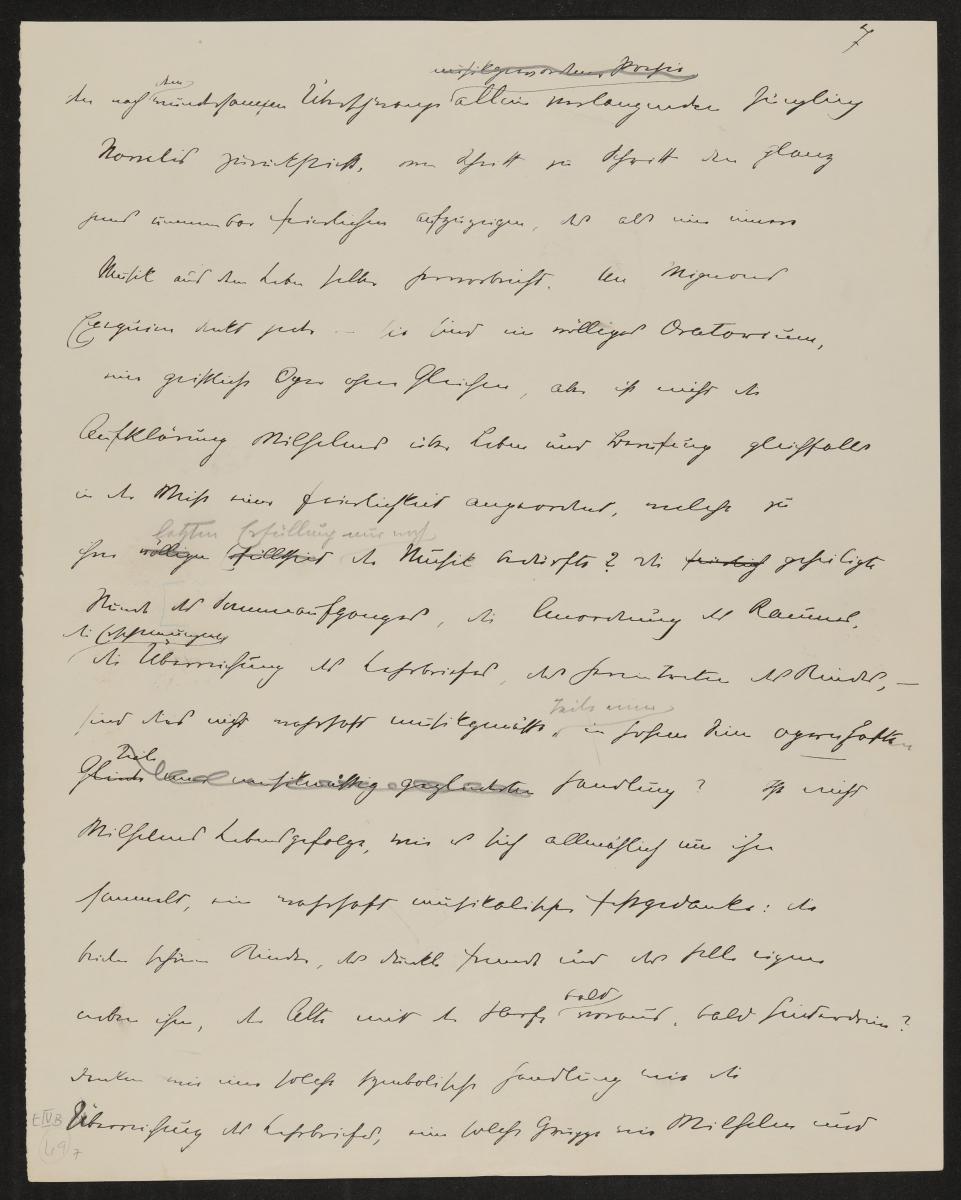 7
musikgewordene Poesie
den
den nach wundersamem Überschwang allein verlangenden Jüngling
Novalis zurückstiess, von Schritt zu Schritt den Glanz
jenes unnennbar Feierlichen aufzuzeigen, das als eine innere
Musik aus dem Leben selber hervorbricht. An Mignons
Exequien denkt jeder – sie sind ein völliges Oratorium,
eine geistliche Oper ohne Gleichen, aber ist nicht die
Aufklärung Wilhelms über Leben und Berufung gleichfalls
in der Weise einer Feierlichkeit angeordnet, welche zu
letzten Erfüllung nur noch
ihrer völligen der Musik bedürfte? die feierlich geheiligte
Stunde des Sonnenaufgangs, die Anordnung der Räume,
die Erscheinungen
die Überreichung des Lehrbriefes, das Hereintreten des Kindes, –
Teils einer
sind das nicht wahrhaft musikgemässe, in hohem Sinn opernhafte
Teile
und musikmässig Handlung? Ist nicht
Wilhelms Lebensgefolge, wie es sich allmählich um ihn
sammelt, ein wahrhaft musikalischer Festgedanke: die
beiden schönen Kinder, der dunkle fremde und der helle eigene
bald
neben ihm, der Alte mit der Harfe voraus, bald hinterdrein?
Denken wir eine solche symbolische Handlung wie die
Überreichung des Lehrbriefes, eine solche Gruppe wie Wilhelm und
E IV B
49
7